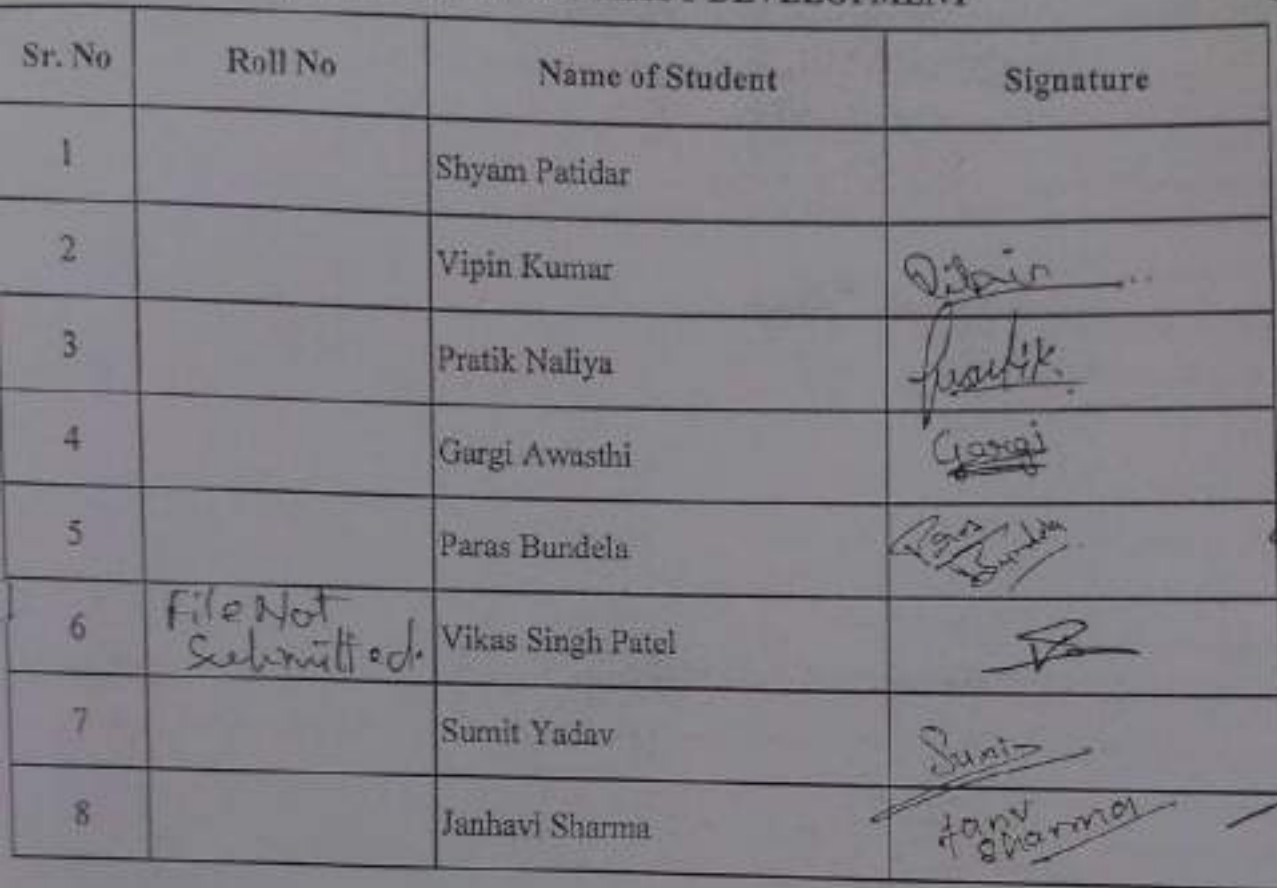 DEVELOPMENT
Sr. No Roll No Name of Student Signature
1 Shyam Patidar
2 Vipin Kumar Vipin
3 Pratik Naliya Pratik
4 Gargi Awasthi Gargi
5 Paras Bundela Paras
Bundela
6 File Not
Submitted. Vikas Singh Patel
7 Sumit Yadav Sumit
8 Janhavi Sharma Janv
Sharma